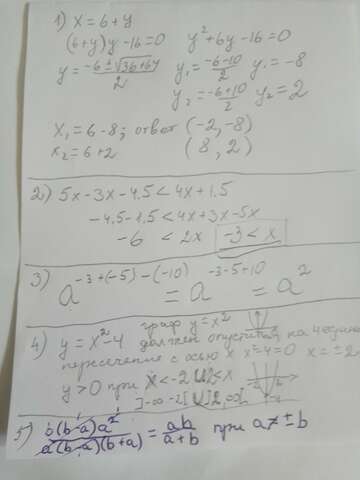 1) x = 6 + y
(6+y)y - 16 = 0    y² + 6y - 16 = 0
y = (-6 ± √(36+64))/2    y₁ = (-6-10)/2    y₁ = -8
y₂ = (-6+10)/2    y₂ = 2
x₁ = 6 - 8; ответ (-2, -8)
x₂ = 6 + 2    (8, 2)
2) 5x - 3x - 4,5 < 4x + 1,5
-4,5 - 1,5 < 4x + 3x - 5x
-6 < 2x    -3 < x
3) a^(-3+(-5)-(-10)) = a^(-3-5+10) = a²
4) y = x² - 4    граф y = x²
должен опуститься на 4 един
пересечение с осью x x² - 4 = 0 x = ± 2
y > 0 при x < -2 U 2 < x
]-∞ -2[ U ]2, ∞[
5) b(b-a)a²/a(b-a)(b+a) = ab/(a+b) при a ≠ ± b